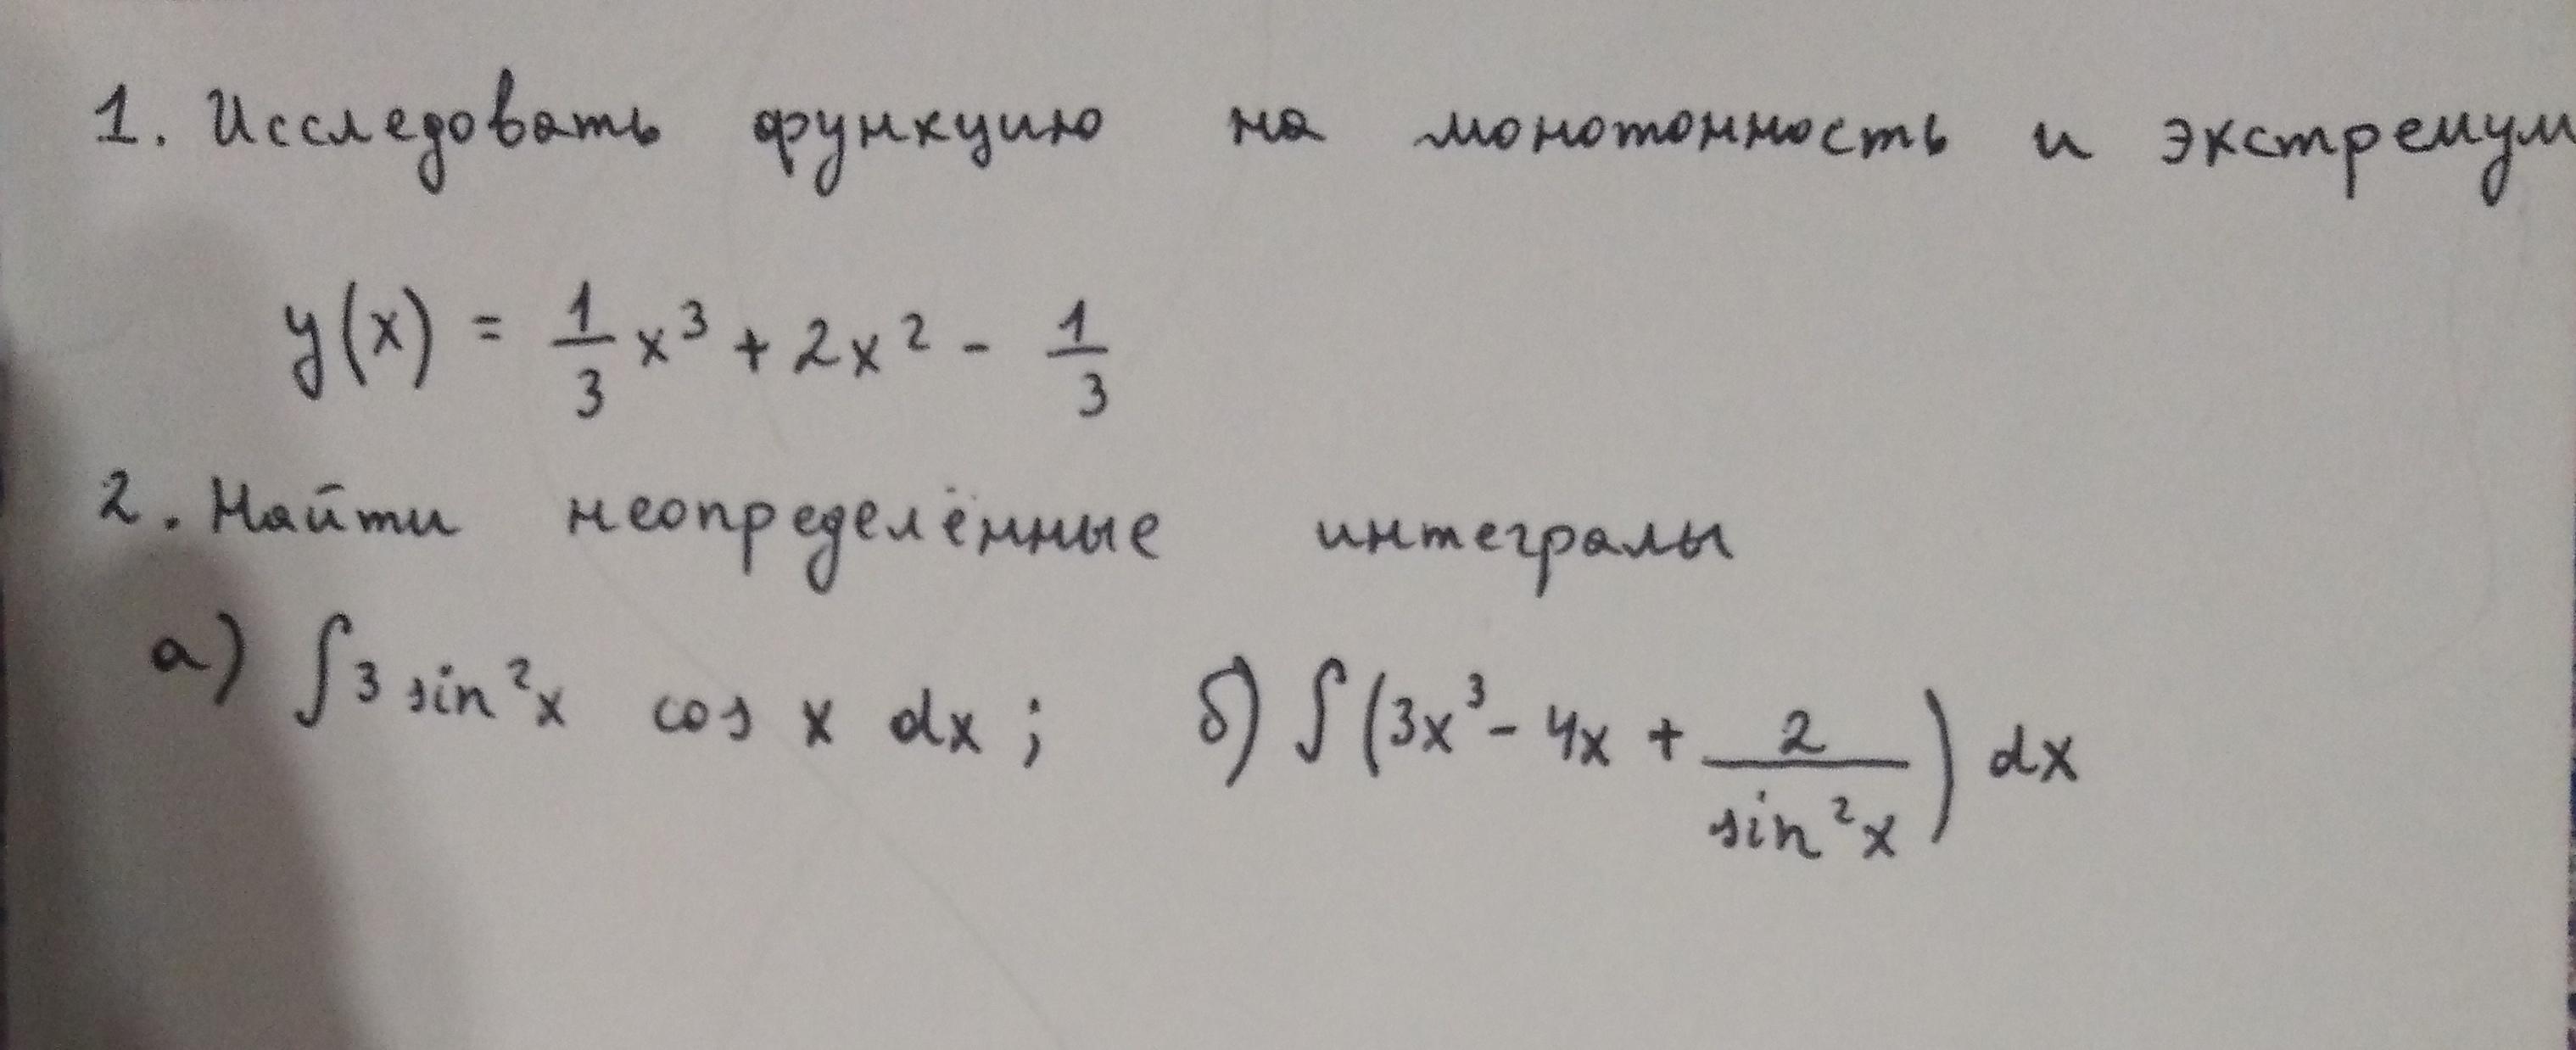 1. Исследовать функцию на монотонность и экстремум
y(x) = 1/3 x³ + 2x² - 1/3
2. Найти неопределённые интегралы
а) ∫3 sin²x cos x dx; б) ∫(3x³ - 4x + 2/sin²x) dx